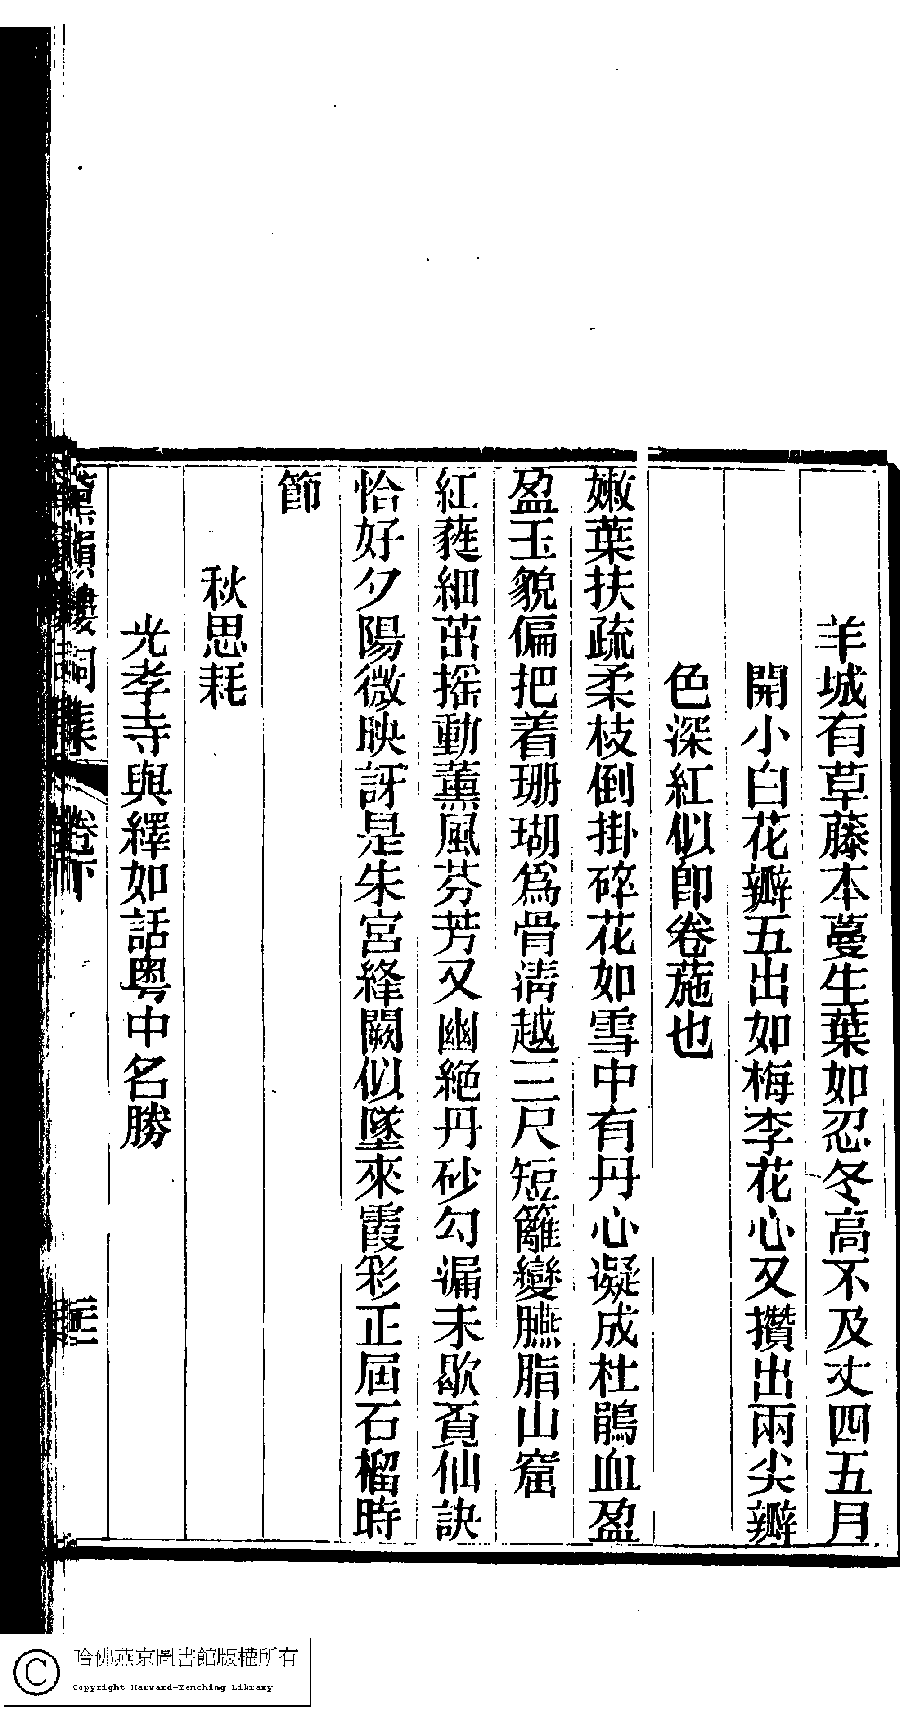 羊城有草藤本蔓生葉如忍冬高不及丈四五月
開小白花瓣五出如梅李花心又攢出兩尖瓣
色深紅似卽卷葹也
嫩葉扶疏柔枝倒掛碎花如雪中有丹心凝成杜鵑血盈
盈玉貌偏把着珊瑚爲骨淸越三尺短籬變臙脂山窟
紅蕤細茁搖動薰風芬芳又幽絕丹砂勾漏未歇頁仙訣
恰好夕陽微映訝是朱宮絳闕似墜來霞彩正屆石榴時
節
秋思耗
光孝寺與繹如話粵中名勝
黛韻樓詞集 卷下
哈佛燕京圖書館版權所有
Copyright Harvard-Yenching Library